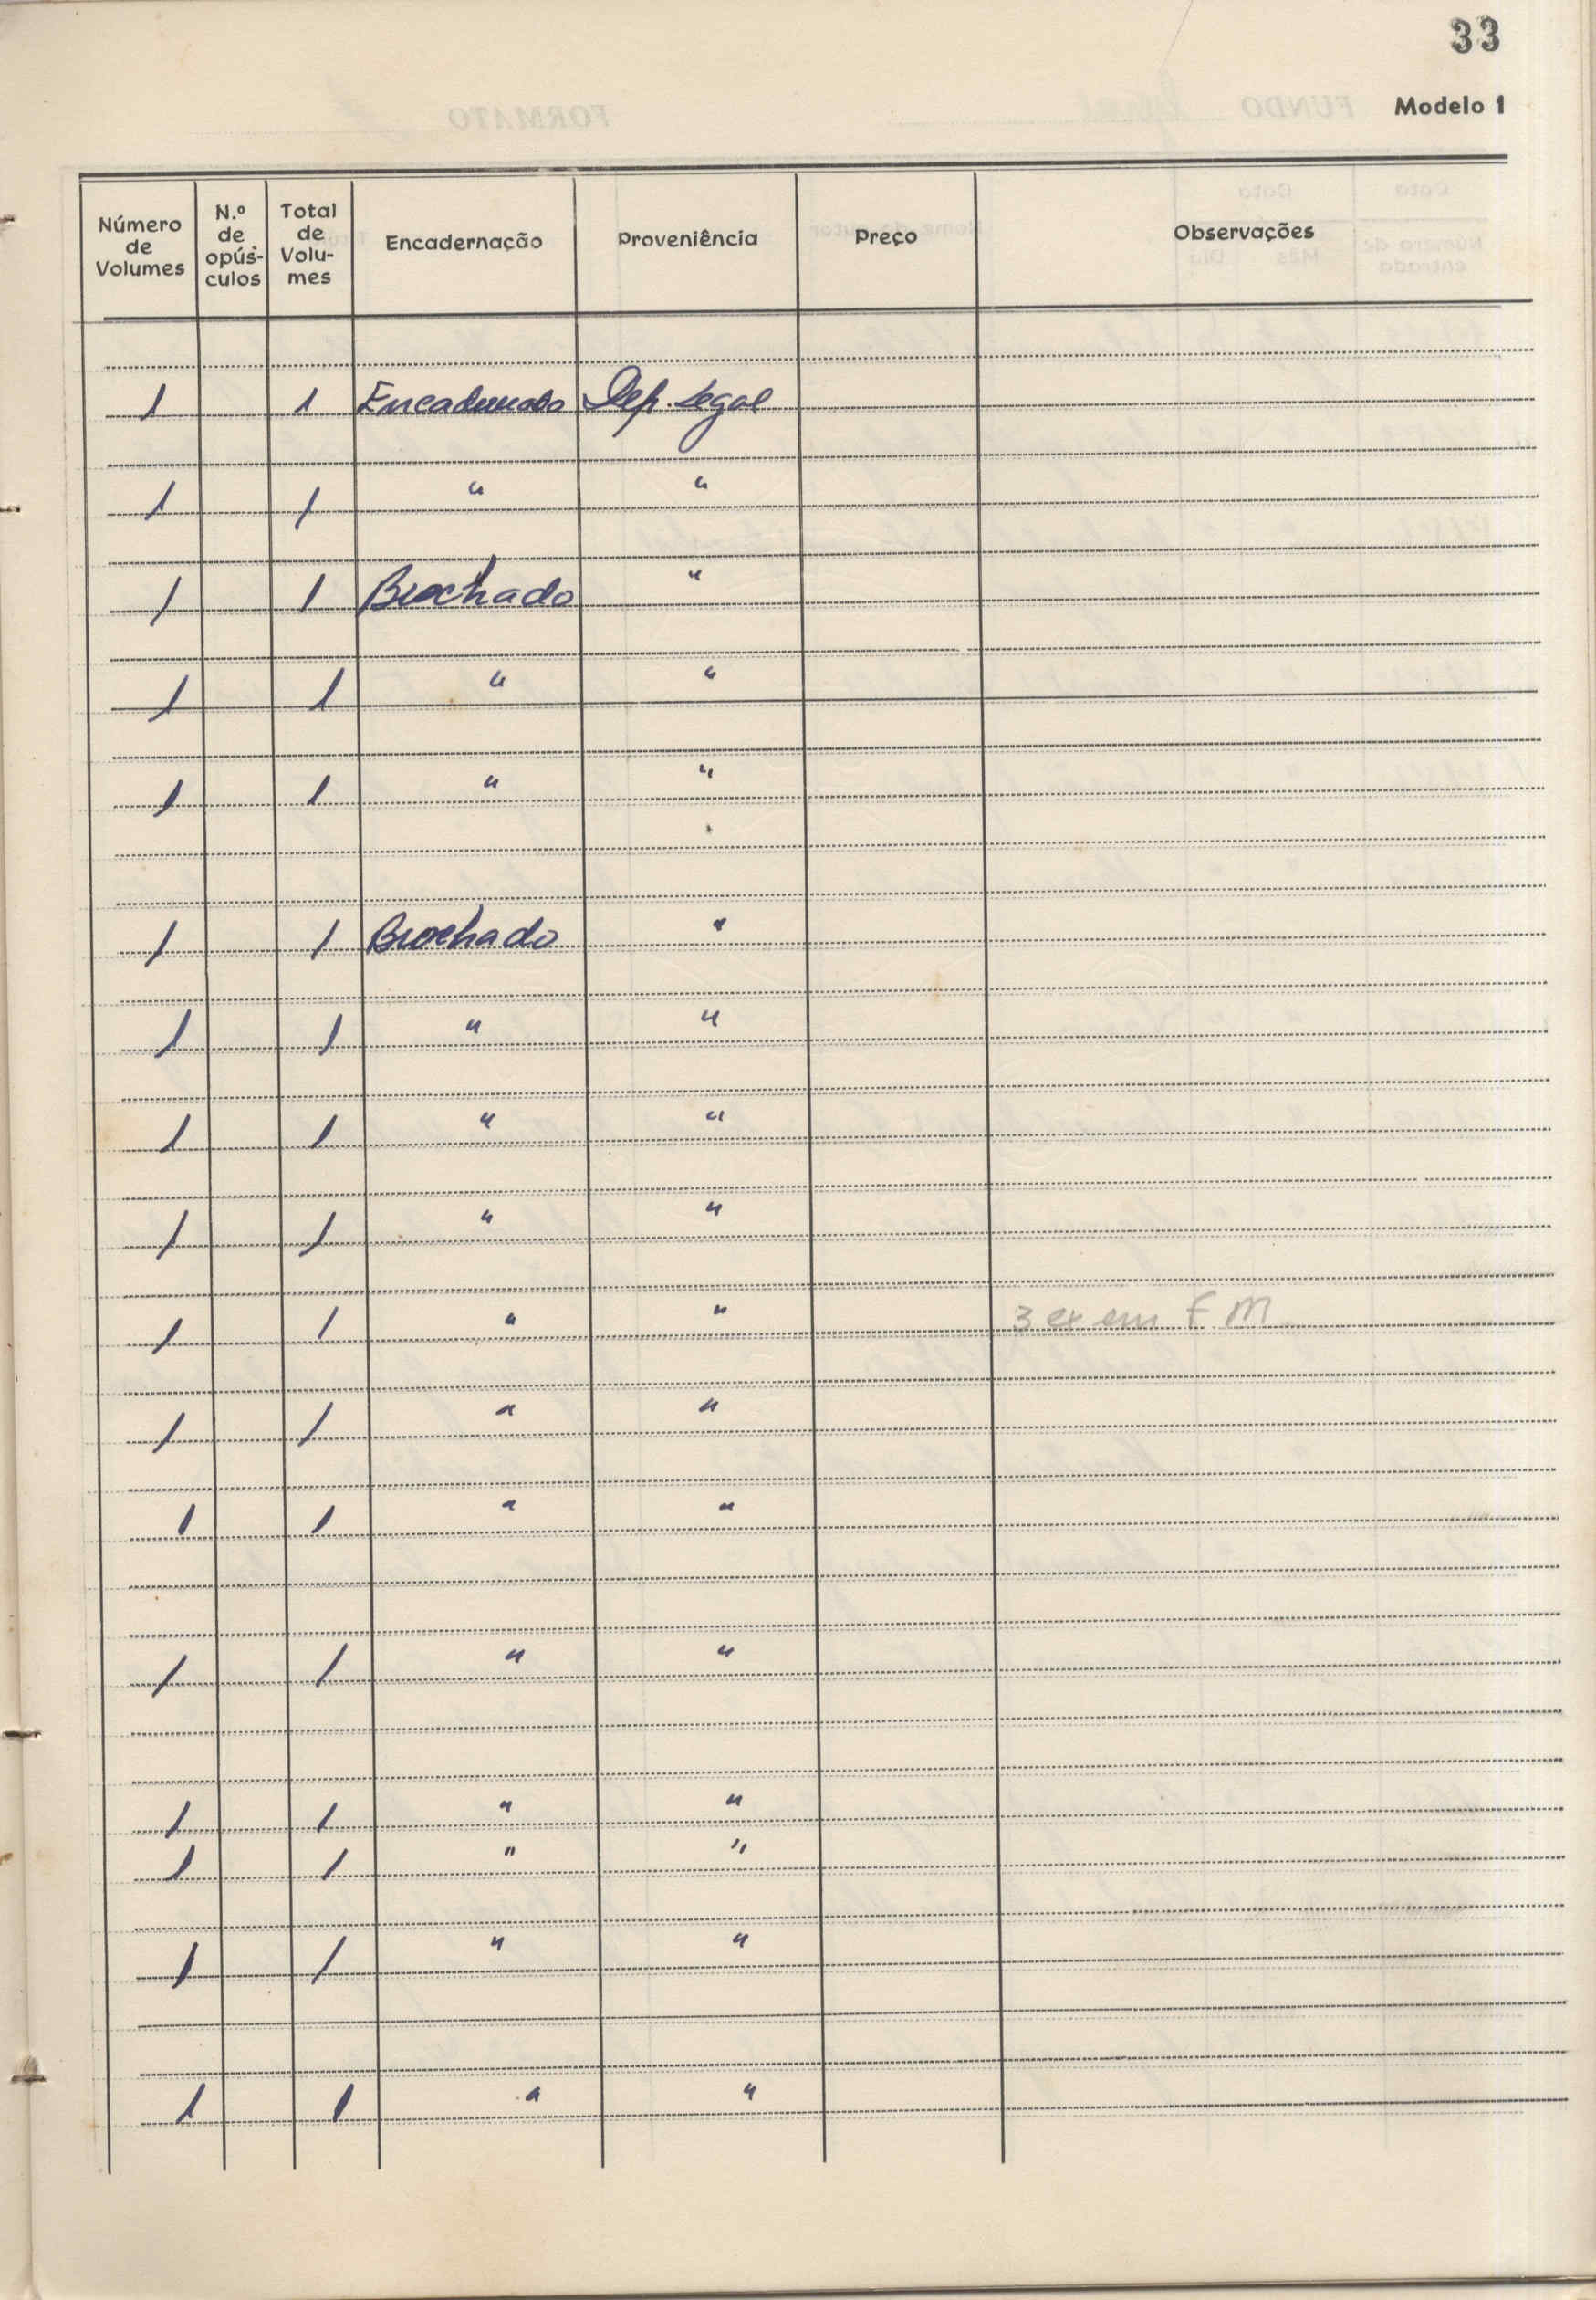 33
Modelo 1
Número de Volumes | N.º de opús-culos | Total de Volu-mes | Encadernação | Proveniência | Preço | Observações
1 1 Encadernado Dep. Legal
1 1 " "
1 1 Brochado "
1 1 " "
1 1 " "
1 1 Brochado "
1 1 " "
1 1 " "
1 1 " "
1 1 " " 3 ex em F. M.
1 1 " "
1 1 " "
1 1 " "
1 1 " "
1 1 " "
1 1 " "
1 1 " "